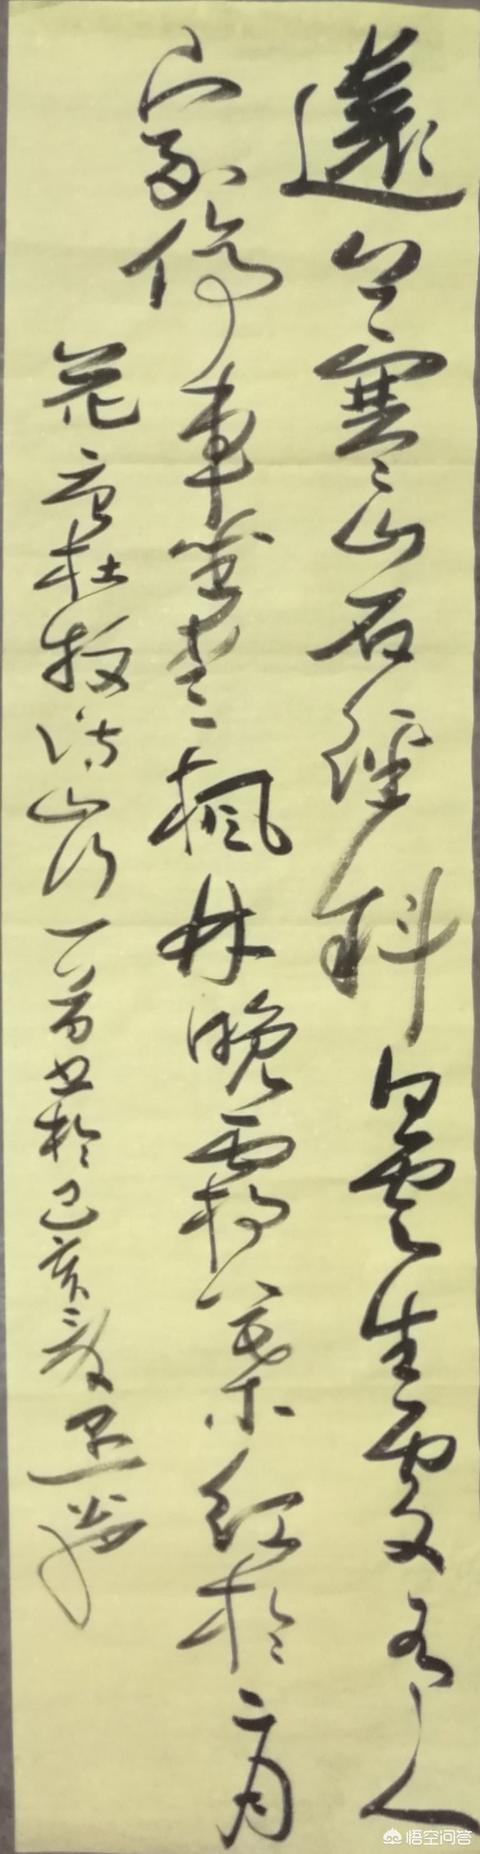 遠上寒山石徑斜白雲生處有人
家停車坐愛楓林晚霜葉紅於二月
花 唐杜牧詩山行一首書於己亥
悟空问答